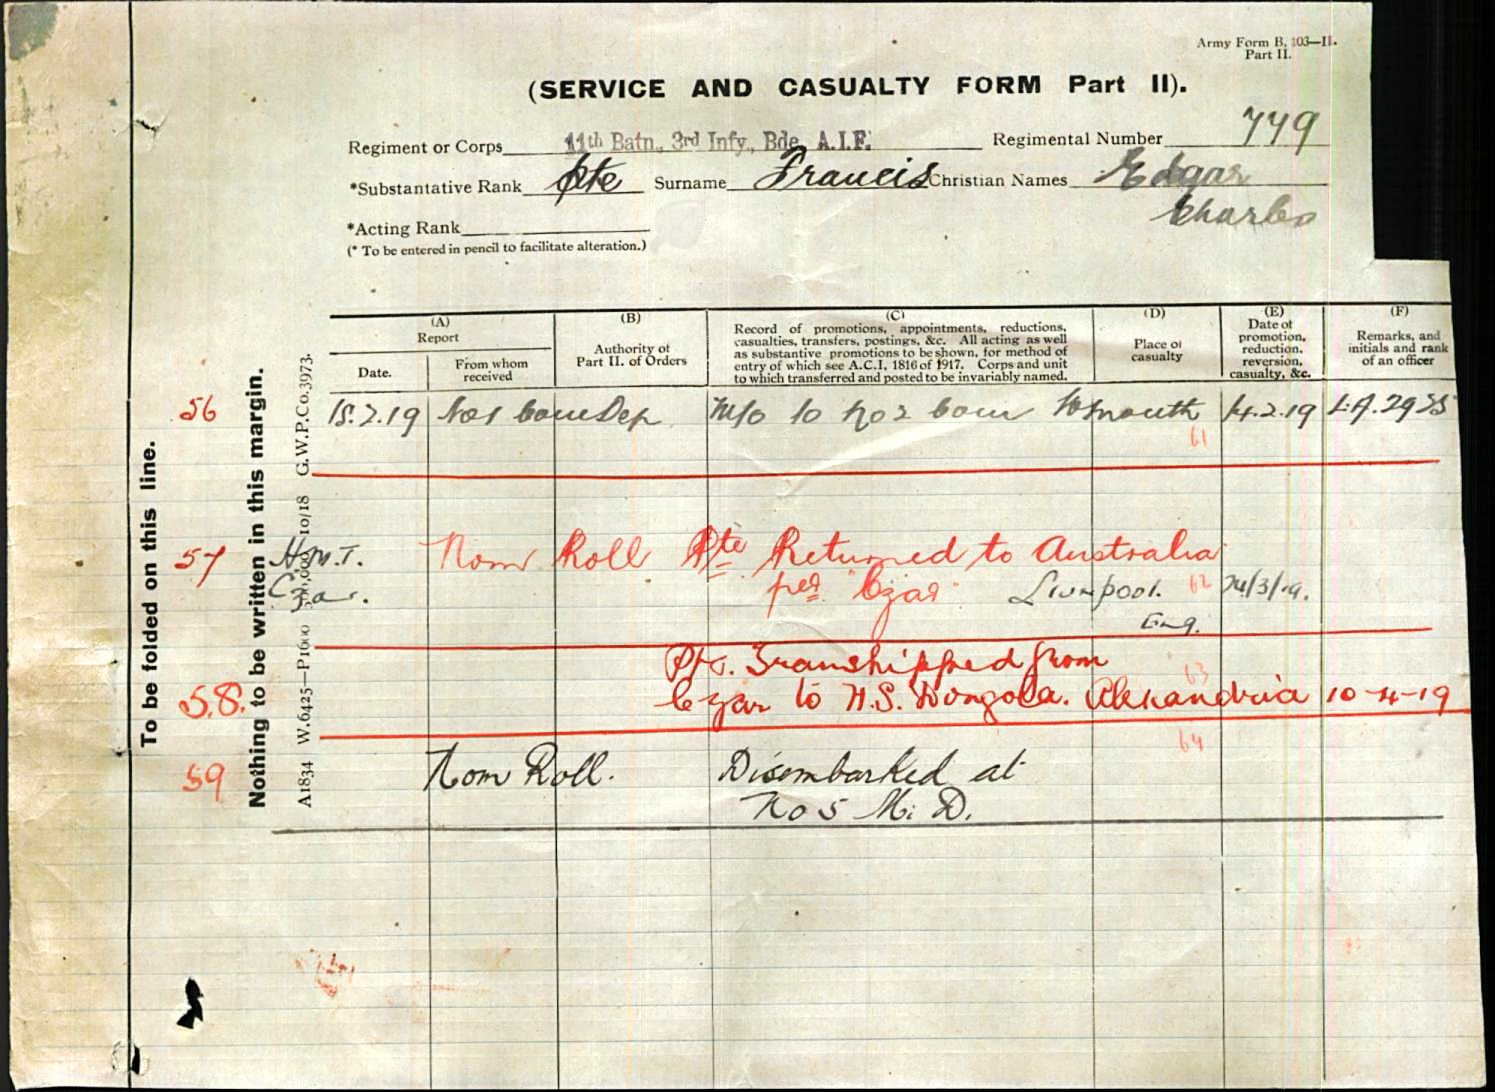 Army Form B. 103—II.
Part II.
(SERVICE AND CASUALTY FORM Part II).
Regiment or Corps 11th Batn., 3rd Infy. Bde. A.I.F. Regimental Number 779
*Substantative Rank Pte Surname Francis Christian Names Edgar
Charles
*Acting Rank
(* To be entered in pencil to facilitate alteration.)
(A)
Report
Date.
From whom
received
(B)
Authority of
Part II. of Orders
(C)
Record of promotions, appointments, reductions,
casualties, transfers, postings, &c. All acting as well
as substantive promotions to be shown, for method of
entry of which see A.C.I. 1816 of 1917. Corps and unit
to which transferred and posted to be invariably named.
(D)
Place of
casualty
(E)
Date of
promotion,
reduction,
reversion,
casualty, &c.
(F)
Remarks, and
initials and rank
of an officer
56 15.2.19 No 1 Com Dep M/o to No 2 Com W'mouth 14.2.19 L.A. 2925
61
57 H.M.T. Nom Roll Pte Returned to Australia
Czar. per "Czar" Liverpool. 62 24/3/19.
Eng.
Pte. Transhipped from
63
58. Czar to H.S. Dongola. Alexandria 10-4-19
64
59 Nom Roll. Disembarked at
No 5 M. D.
To be folded on this line.
Nothing to be written in this margin.
A1834 W.6425—P1600 10/18 G.W.P.Co.3973.